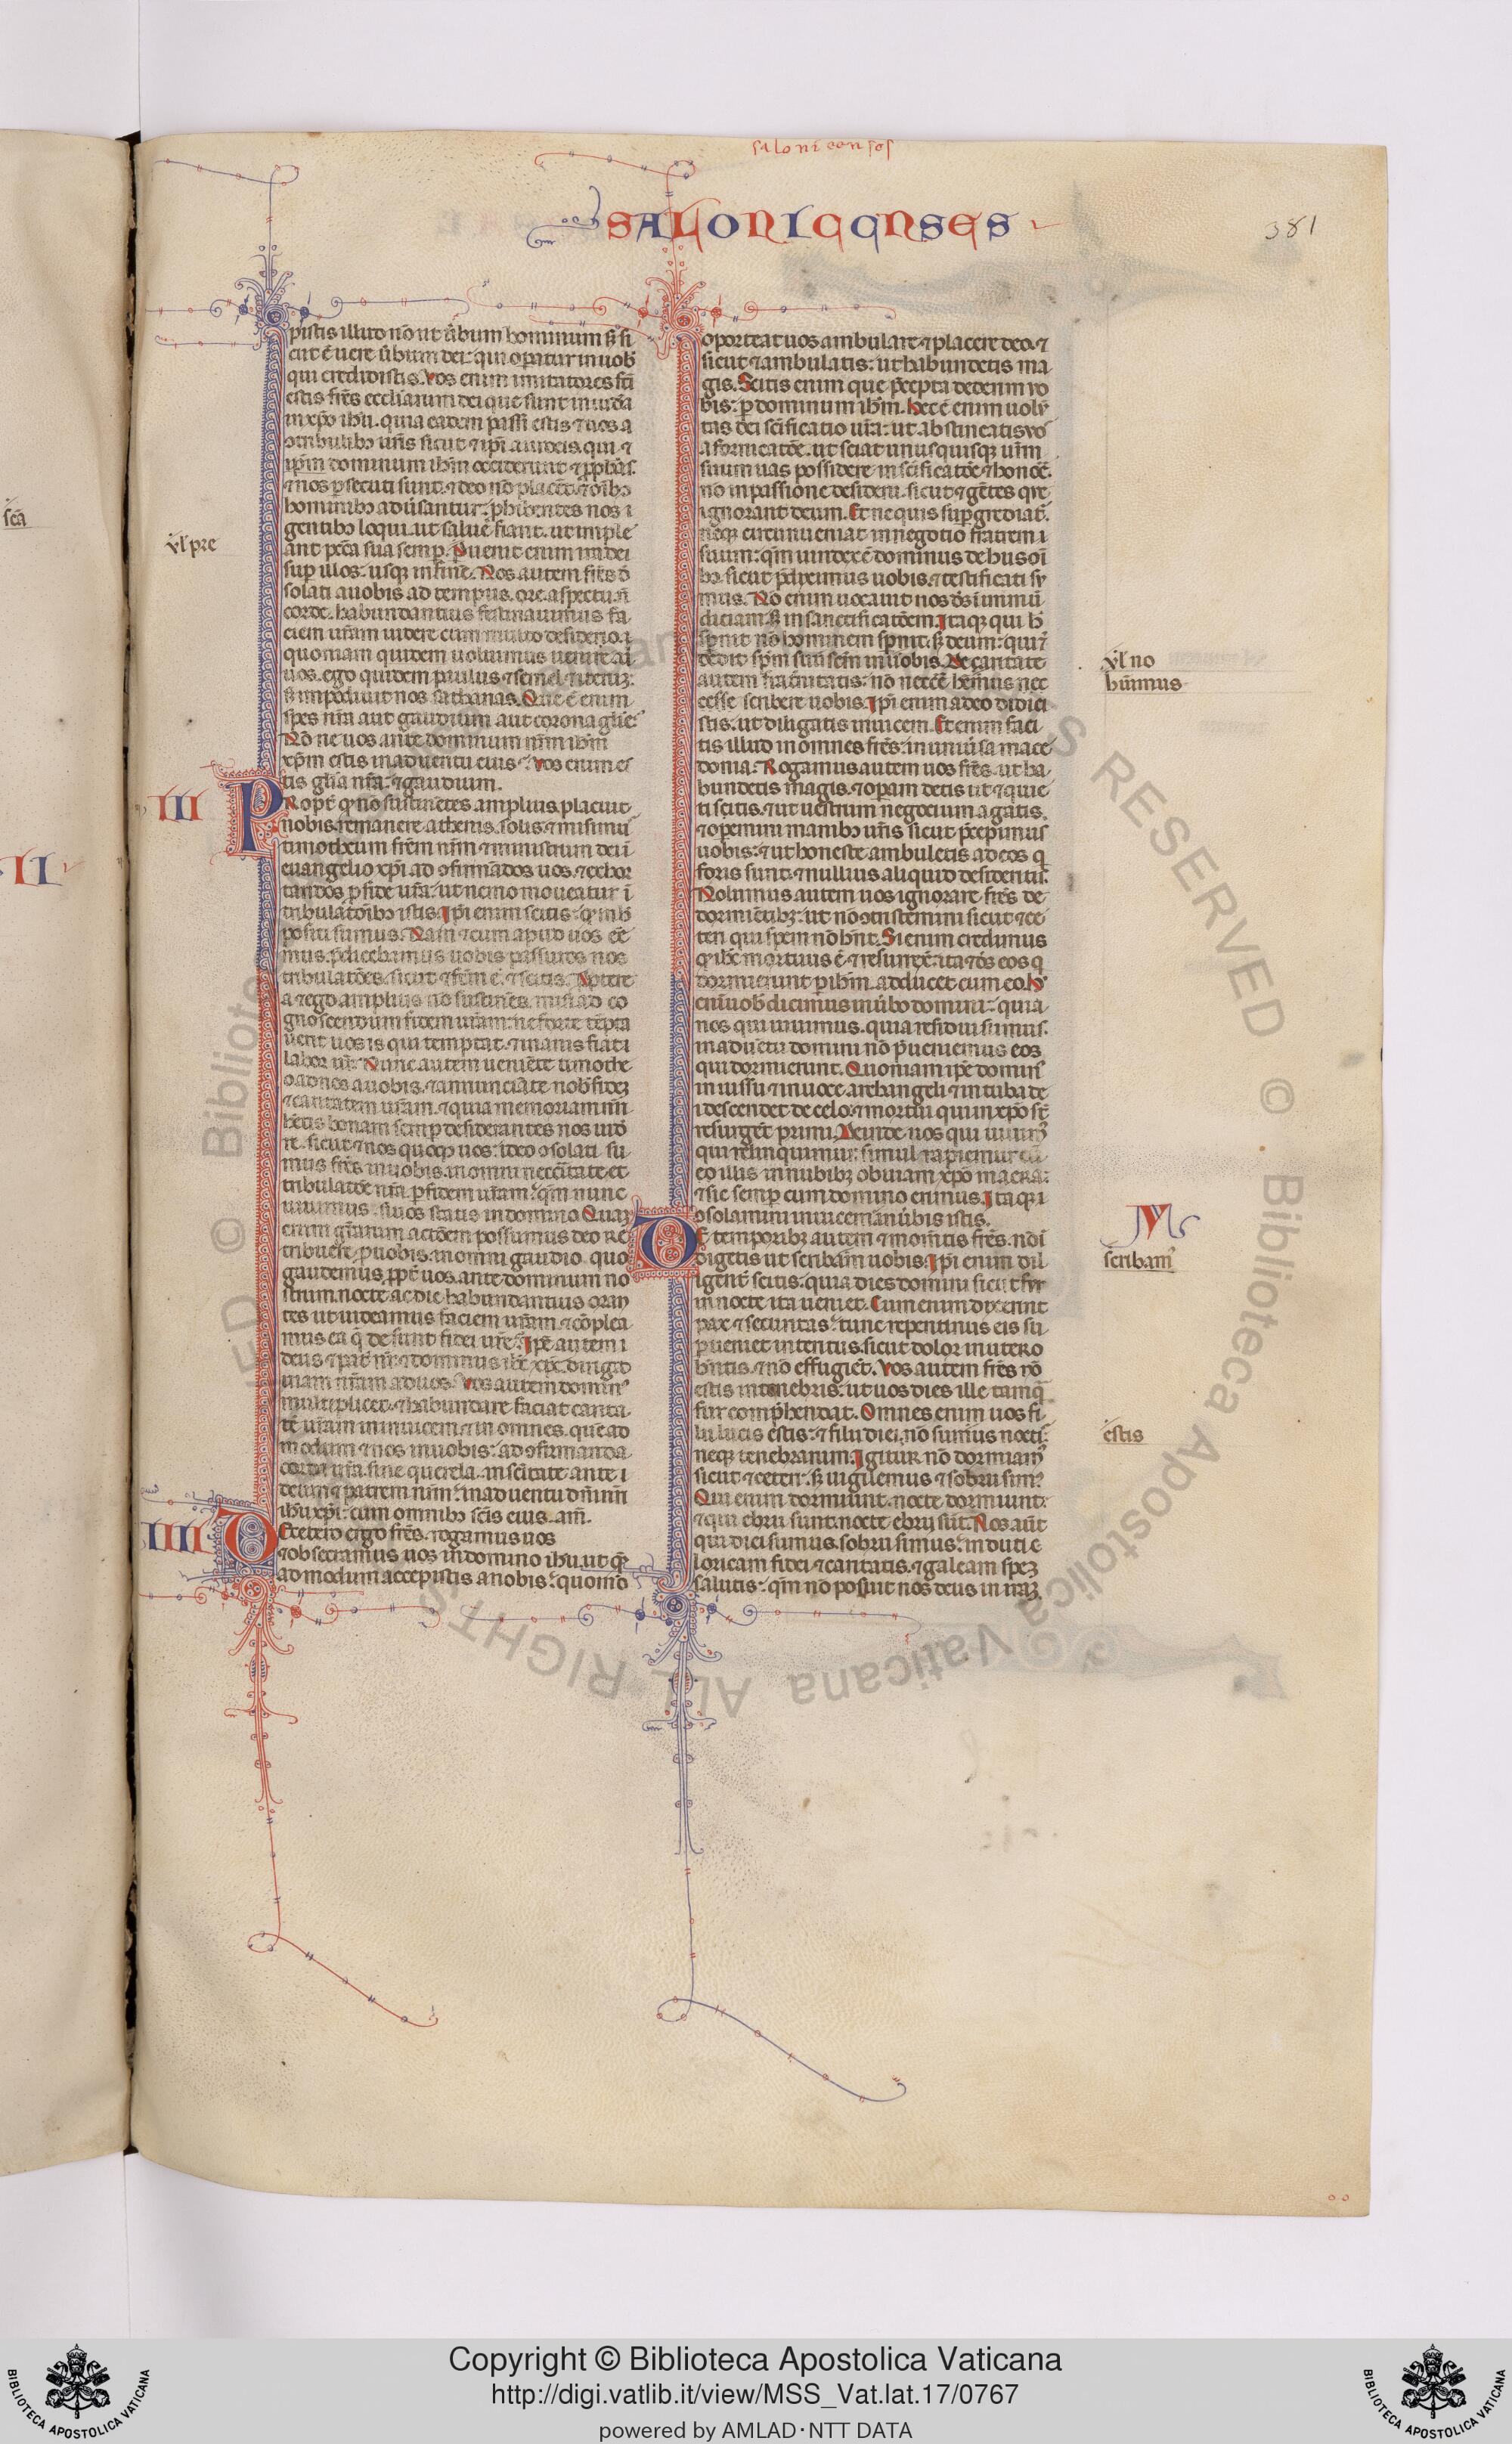 salonicenses
SALONICENSES
381
scā
II
pistis illud nō ut ūbum hominum sꝫ si
cut ē uere ūbum dei: qui opatur in uob
qui credidistis. Vos enim imitatores fcī
estis frēs eccliarum dei que sunt in iudea
in xp̄o ihū. quia eadem passi estis ⁊ uos a
ꝯtribulibꝫ ur̄is sicut ⁊ ip̄i a iudeis. qui ⁊
ip̄m dominum ihm occiderunt ⁊ pphās.
⁊ nos psecuti sunt. ⁊ deo nō placēt. ⁊ oībꝫ
hominibꝫ adūsantur: phibentes nos i
gentibꝫ loqui. ut salue fiant. ut imple
ant pctā sua semp. Puenit enim ira dei
sup illos: usqꝫ in finē. Nos autem frēs ō
solati a uobis ad tempus. ore. aspectu. n̄
corde. habundantius festinauimus fa
ciem ur̄am uidere cum multo desiderio. i
quoniam quidem uoluimus uenire ad
uos. ego quidem paulus ⁊ semel ⁊ iterum:
sꝫ impediuit nos sathanas. Que ē enim
spes nr̄a aut gaudium aut corona glīe
Nō ne uos ante dominum nr̄m ihm
xp̄m estis in aduentu eius: Vos enim es
tis glīa nr̄a: ⁊ gaudium.
III
PRopt̄ qđ nō sustinētes amplius. placuit
nobis remanere athenis. solis. ⁊ misimus
timotheum frēm nr̄m ⁊ ministrum dei i
euangelio xp̄i. ad ꝯfirmādos uos. ⁊ exhor
tandos p fide ur̄a: ut nemo moueatur i
tribulatōibꝫ istis. Ipi enim scitis: qđ in h
positi sumus. Nam ⁊ cum apud uos eē
mus. pdicebamus uobis passuros nos
tribulatōes. sicut ⁊ fcm̄ ē. ⁊ scitis. Ropt̄ere
a ⁊ ego amplius nō sustinēs. misi ad co
gnoscendum fidem ur̄am: ne forte tēpta
uerit uos is qui temptat. ⁊ inanis fiat i
labor nr̄. Nunc autem ueniēte timothe
o ad nos a uobis. ⁊ annunciāte nob̄ fidez
⁊ caritatem ur̄am. ⁊ quia memoriam nr̄i
hētis bonam semp. desiderantes nos uid
re. sicut ⁊ nos quoqꝫ uos: ideo ꝯsolati su
mus frēs in uobis. in omni necc̄itate et
tribulatōe nr̄a. p fidem ur̄am: qm̄ nunc
uiuimus. si uos statis in domino. Quam
enim grātiarum actōem possumus deo re
tribuere p uobis. in omni gaudio. quo
gaudemus. ppt̄ uos. ante dominum no
strum. nocte ac die. habundantius oran
tes ut uideamus faciem ur̄am. ⁊ cōplea
mus ea q̄ desunt fidei ur̄e: Ipe autem i
deus ⁊ pat̄ nr̄. ⁊ dominus ihc xpc dirigat
uiam nr̄am ad uos. Vos autem dominꝰ
multiplicet. ⁊ habundare faciat carita
tē ur̄am in inuicem ⁊ in omnes. que ad
modum ⁊ nos in uobis: ad ꝯfirmanda
corda ur̄a. sine querela. in scītate ante i
deum ⁊ patrem nr̄m: in aduentu dn̄i nr̄i
ihū xp̄i: cum omnibꝫ scīs eius. am̄.
IIII
DEcetero ergo frēs. rogamus uos
⁊ obsecramus uos in domino ihū. ut q̄m
ad modum accepistis a nobis: quomō
ul̄ pre
oporteat uos ambulare ⁊ placere deo. ⁊
sicut ⁊ ambulatis: ut habundetis ma
gis. Scitis enim que p̄cepta dederim uo
bis: p dominum ihm. Hec ē enim uolū
tas dei scīficatio ur̄a: ut abstineatis uos
a fornicatōe. ut sciat unusquisqꝫ ur̄m
suum uas possidere in scīficatōe ⁊ honōe.
nō in passione desiderii. sicut ⁊ gētes que
ignorant deum. Et nequis supgrediat̄.
neqꝫ circumueniat in negotio fratrem i
suum: qm̄ uindex ē dominus de hiis oī
bꝫ. sicut p̄diximus uobis. ⁊ testificati su
mus. Nō enim uocauit nos ds̄ i immū
diciam. sꝫ in sanctificatōem. Itaqꝫ qui h̄
spernit nō hominem spernit. sꝫ deum: qui ⁊
dedit spm̄ suū scm̄ in uobis. De caritate
autem fr̄nitatis: nō necc̄e hēmus nec
cesse scribere uobis. Ipi enim a deo didici
stis. ut diligatis inuicem. Etenim faci
tis illud in omnes frēs: in uniūsa mace
donia: Rogamus autem uos frēs. ut ha
bundetis magis. ⁊ opam detis ut ⁊ quie
ti scitis. ⁊ ut uestrum negocium agatis.
⁊ operemini manibꝫ ur̄is sicut p̄cepimus
uobis: ⁊ ut honeste ambuletis ad eos q̄
foris sunt. ⁊ nullius aliquid desideretis.
Nolumus autem uos ignorare frēs de
dormiētibꝫ: ut nō ꝯtristemini sicut ⁊ ce
teri qui spem nō hn̄t. Si enim credimus
qđ ihc mortuus ē ⁊ resurrexit. ita ⁊ ds̄ eos q̄
dormierunt p ihm. adducet cum eo. Hoc
enim uob̄ dicimus in ūbo domini: quia
nos qui uiuimus. quia residui sumus.
in aduētu domini nō pueniemus eos
qui dormierunt. Quoniam ipe dominꝰ
in iussu ⁊ in uoce archangeli ⁊ in tuba de
i descendet de celo: ⁊ mortui qui in xp̄o st̄
resurgēt primi. Deinde nos qui uiuimꝰ
qui relinquimur: simul rapiemur cū
eo illis in nubibꝫ obuiam xp̄o in aera:
⁊ sic semp cum domino erimus. Itaqꝫ i
ꝯsolamini inuicem in ūbis istis.
DE temporibꝫ autem ⁊ momētis frēs. n̄ dī
digetis ut scribam uobis. Ipi enim dil
igent̄ scitis: quia dies domini sicut fur
in nocte ita ueniet. Cum enim dixerint
pax ⁊ securitas: tunc repentinus eis su
pueniet interitus. sicut dolor in utero
hn̄tis. ⁊ nō effugiēt. Vos autem frēs nō
estis in tenebris: ut uos dies ille tamq̄
fur comp̄hendat. Omnes enim uos fi
lii lucis estis: ⁊ filii diei. nō sumus noctis
neqꝫ tenebrarum. Igitur nō dormiamꝰ
sicut ⁊ ceteri. sꝫ uigilemus ⁊ sobrii simꝰ.
Qui enim dormiunt. nocte dormiunt:
⁊ qui ebrii sunt. nocte ebrii sūt. Nos aūt
qui diei sumus. sobrii simus: induti i
loricam fidei ⁊ caritatis. ⁊ galeam spez
salutis: qm̄ nō posuit nos deus in iraz.
ul̄ no
bimus
V
scribamꝰ
estis
© Biblioteca Apostolica Vaticana ALL RIGHTS RESERVED
Copyright © Biblioteca Apostolica Vaticana
http://digi.vatlib.it/view/MSS_Vat.lat.17/0767
powered by AMLAD·NTT DATA
BIBLIOTECA APOSTOLICA VATICANA
BIBLIOTECA APOSTOLICA VATICANA